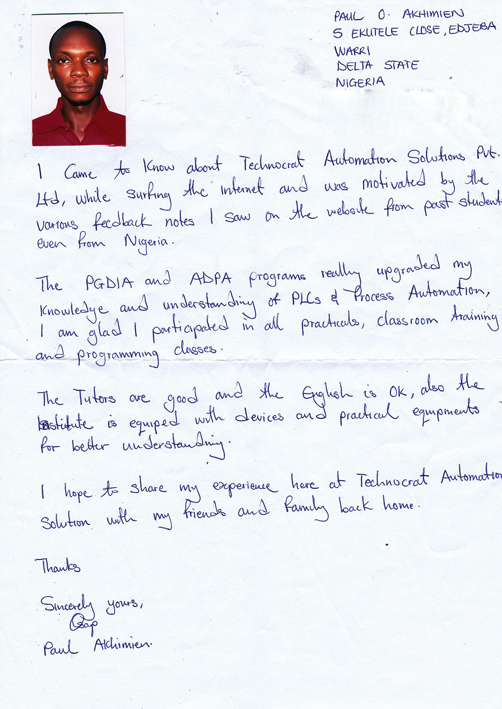 PAUL O. AKHIMIEN
5 EKUTELE CLOSE, EDJEBA
WARRI
DELTA STATE
NIGERIA
I Came to Know about Technocrat Automation Solutions Pvt.
Ltd, while surfing the internet and was motivated by the
various feedback notes I saw on the website from past student
even from Nigeria.
The PGDIA and ADPA programs really upgraded my
Knowledge and understanding of PLCs & Process Automation,
I am glad I participated in all practicals, classroom training
and programming classes.
The Tutors are good and the English is OK, also the
Institute is equiped with devices and practical equipments
for better understanding.
I hope to share my experience here at Technocrat Automation
Solution with my friends and family back home.
Thanks
Sincerely yours,
Paul Akhimien.